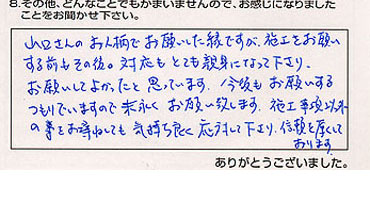 8.その他、どんなことでもかまいませんので、お感じになりました
ことをお聞かせ下さい。
山口さんのお人柄でお願いした縁ですが、施工をお願い
する前もその後も対応もとても親身になって下り、
お願いしてよかったと思っています。今後もお願いする
つもりでいますので末永くお願い致します。施工事項以外
の事をお尋ねしても気持ち良く応対して下り、信頼を厚くして
おります
ありがとうございました。